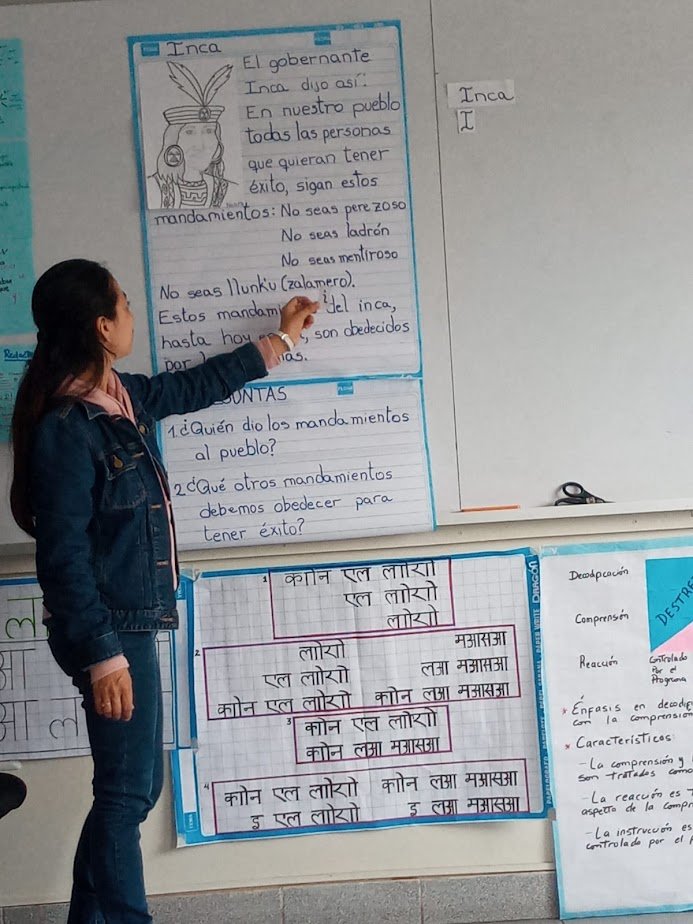 Inca
El gobernante
Inca dijo así:
En nuestro pueblo
todas las personas
que quieran tener
éxito, sigan estos
mandamientos: No seas perezoso
No seas ladrón
No seas mentiroso
No seas llunku (zalamero).
Estos del inca,
hasta hoy son obedecidos
por
1. ¿Quién dio los mandamientos
al pueblo?
2 ¿Qué otros mandamientos
debemos obedecer para
tener éxito?
Inca
I
1 कोन एल लोरो
एल लोरो
लोरो
2 लोरो मआसआ
एल लोरो लआ मआसआ
कोन एल लोरो कोन लआ मआसआ
3 कोन एल लोरो
कोन लआ मआसआ
4 कोन एल लोरो कोन लआ मआसआ
इ एल लोरो इ लआ मआसआ
DRAGÓN
Comprensión
Reacción
Controlado
Por el
Programa
* Énfasis en
con la
* Características:
- La comprensión y
son tratados como
- La reacción es
aspecto de la
- La instrucción es
controlado por el